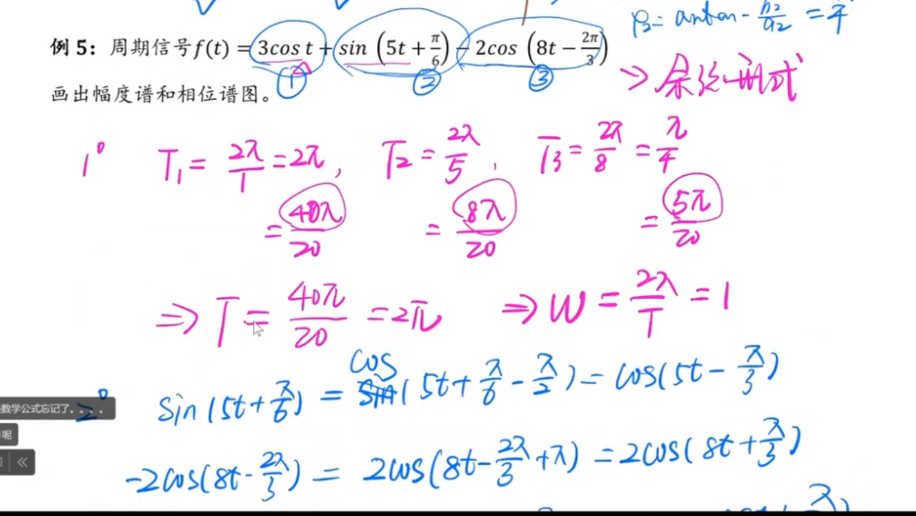 φ₂ = arctan - b₂/a₂ = π/4
例 5：周期信号f(t) = 3cos t + sin (5t + π/6) − 2cos (8t − 2π/3)
① ② ③
⇒ 余弦形式
画出幅度谱和相位谱图。
1° T₁ = 2π/1 = 2π, T₂ = 2π/5, T₃ = 2π/8 = π/4
= 40π/20 = 8π/20 = 5π/20
⇒ T = 40π/20 = 2π ⇒ W = 2π/T = 1
2° sin(5t + π/6) = cos(5t + π/6 − π/2) = cos(5t − π/3)
数学公式忘记了。。。。
呢
-2cos(8t − 2π/3) = 2cos(8t − 2π/3 + π) = 2cos(8t + π/3)